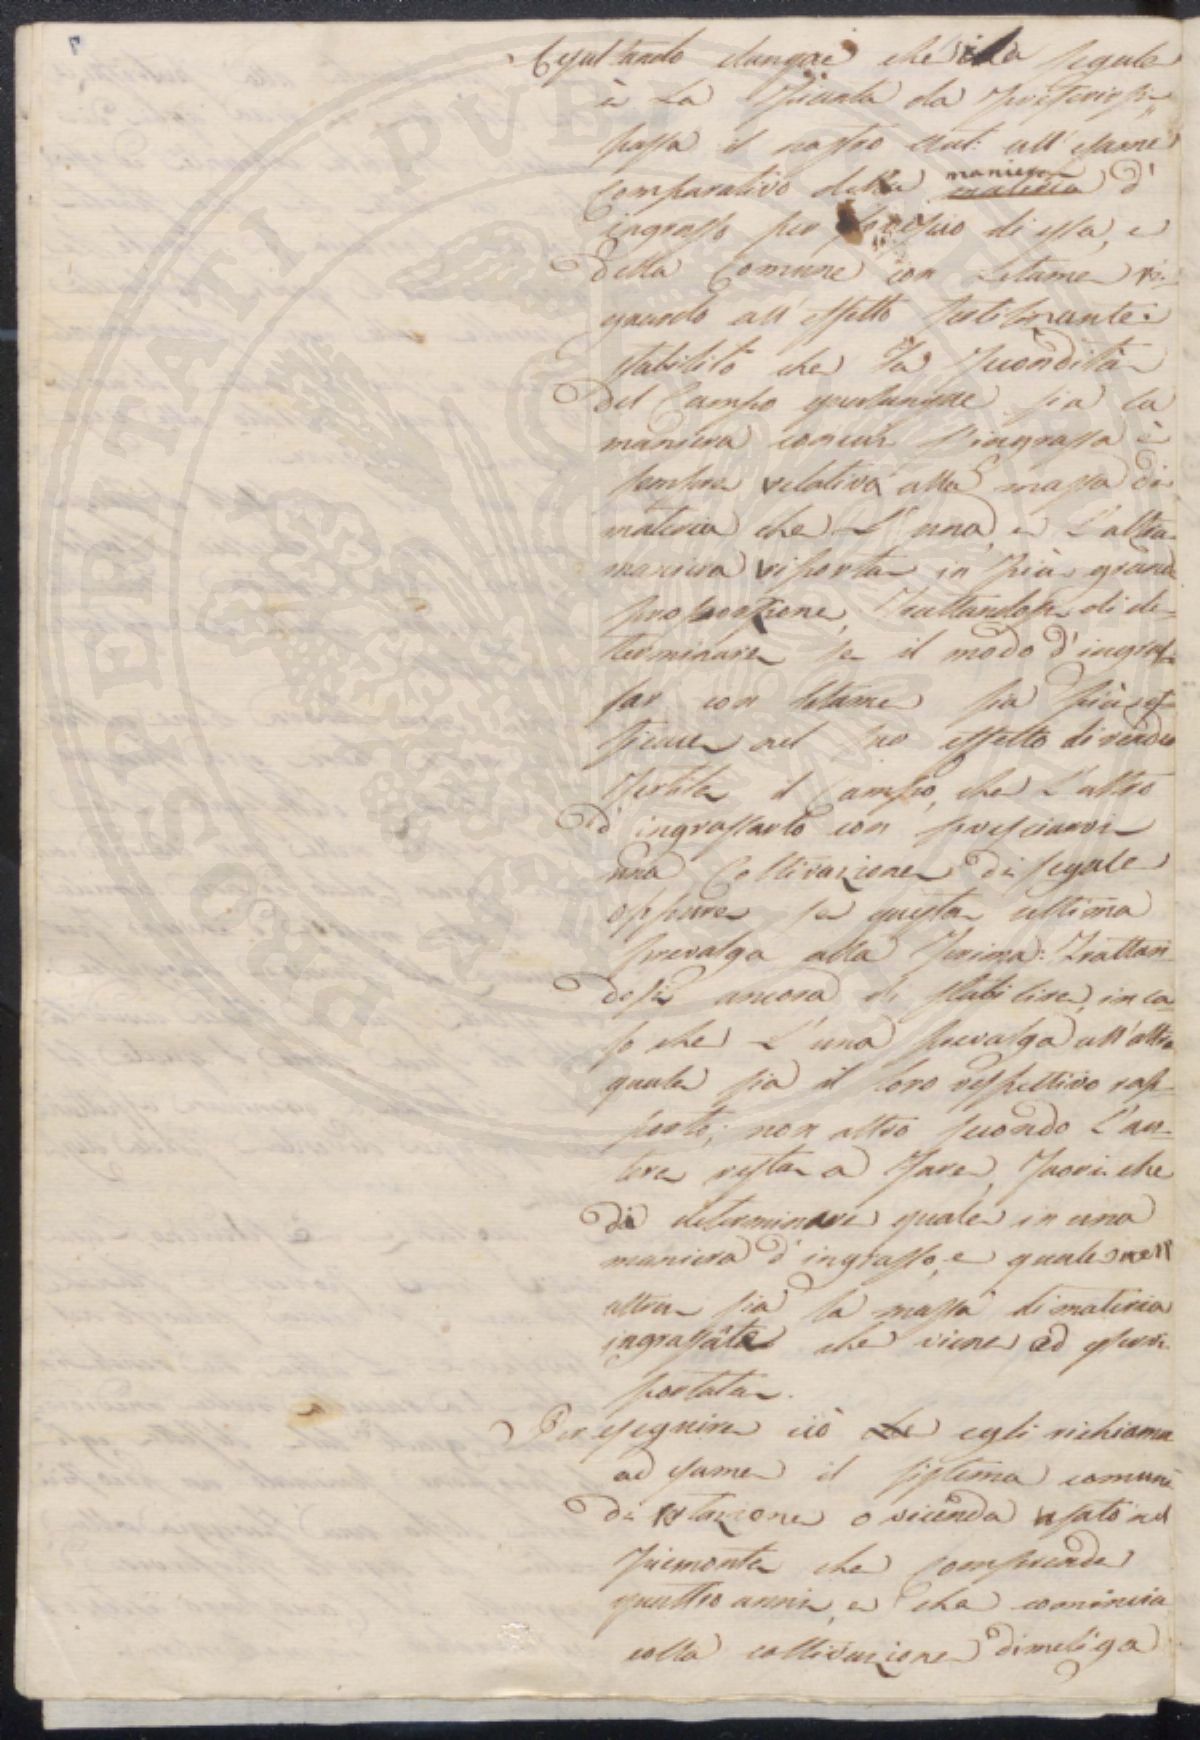 7
Resultando dunque che la segale
è La Pianta da Preferirsi
passa il nostro Aut: all'esame
Comparativo della maniera materia d'
ingrasso per rovescio di essa, e
della Comune con Letame ri-
guardo all'effetto fertilizzante:
stabilito che la fecondità
del Campo qualunque sia la
maniera con cui s'ingrassa è
sempre relativa alla massa di
materia che L'una, e L'altra
maniera riporta in più grande
proporzione, Trattandosi di de-
terminare se il modo d'ingras-
sar con letame sia più ef-
ficace nel suo effetto di render
fertile il Campo, che L'altro
d'ingrassarlo con rovesciarvi
una Coltivazione di segale
oppure se questa ultima
prevalga alla Prima: Trattan-
dosi ancora di stabilire, in ca-
so che L'una prevalga all'altra
quale sia il loro rispettivo rap-
porto; non altro secondo L'au-
tore resta a Fare, Fuori che
di determinare quale in una
maniera d'ingrasso, e quale nell'
altra sia la massa di materia
ingrassante che viene ad esser ri-
portata.
Per eseguire ciò che egli richiama
ad esame il sistema comune
di rotazione o vicenda usato nel
Piemonte che comprende
quattro anni, e che comincia
colla coltivazione di meliga
PROSPERITATI PUBLICAE